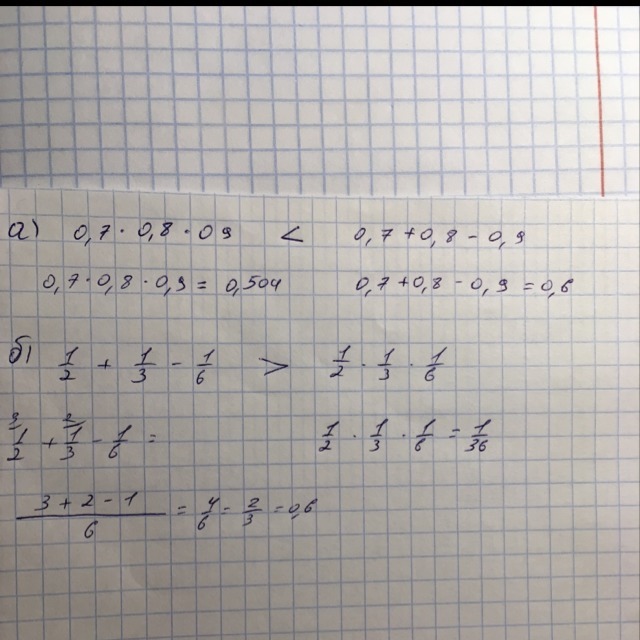 а) 0,7 · 0,8 · 0 9 < 0,7 + 0,8 - 0,9
0,7 · 0,8 · 0,9 = 0,504 0,7 + 0,8 - 0,9 = 0,6
б) 1/2 + 1/3 - 1/6 > 1/2 · 1/3 · 1/6
3 2
1/2 + 1/3 - 1/6 = 1/2 · 1/3 · 1/6 = 1/36
(3 + 2 - 1)/6 = 4/6 = 2/3 = 0,6